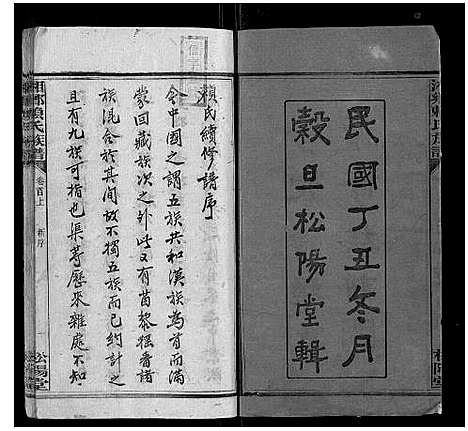 民國丁丑冬月
穀旦松陽堂輯
賴氏續修譜序
今中國之謂五族共和漢族為首而滿
蒙回藏族次之外此又有苗黎猺番諸
族混合於其間故不獨五族而已約計之
且有九族可指也渠等歷來雜處不知
湘鄉賴氏族譜
卷首上
新序
松陽堂